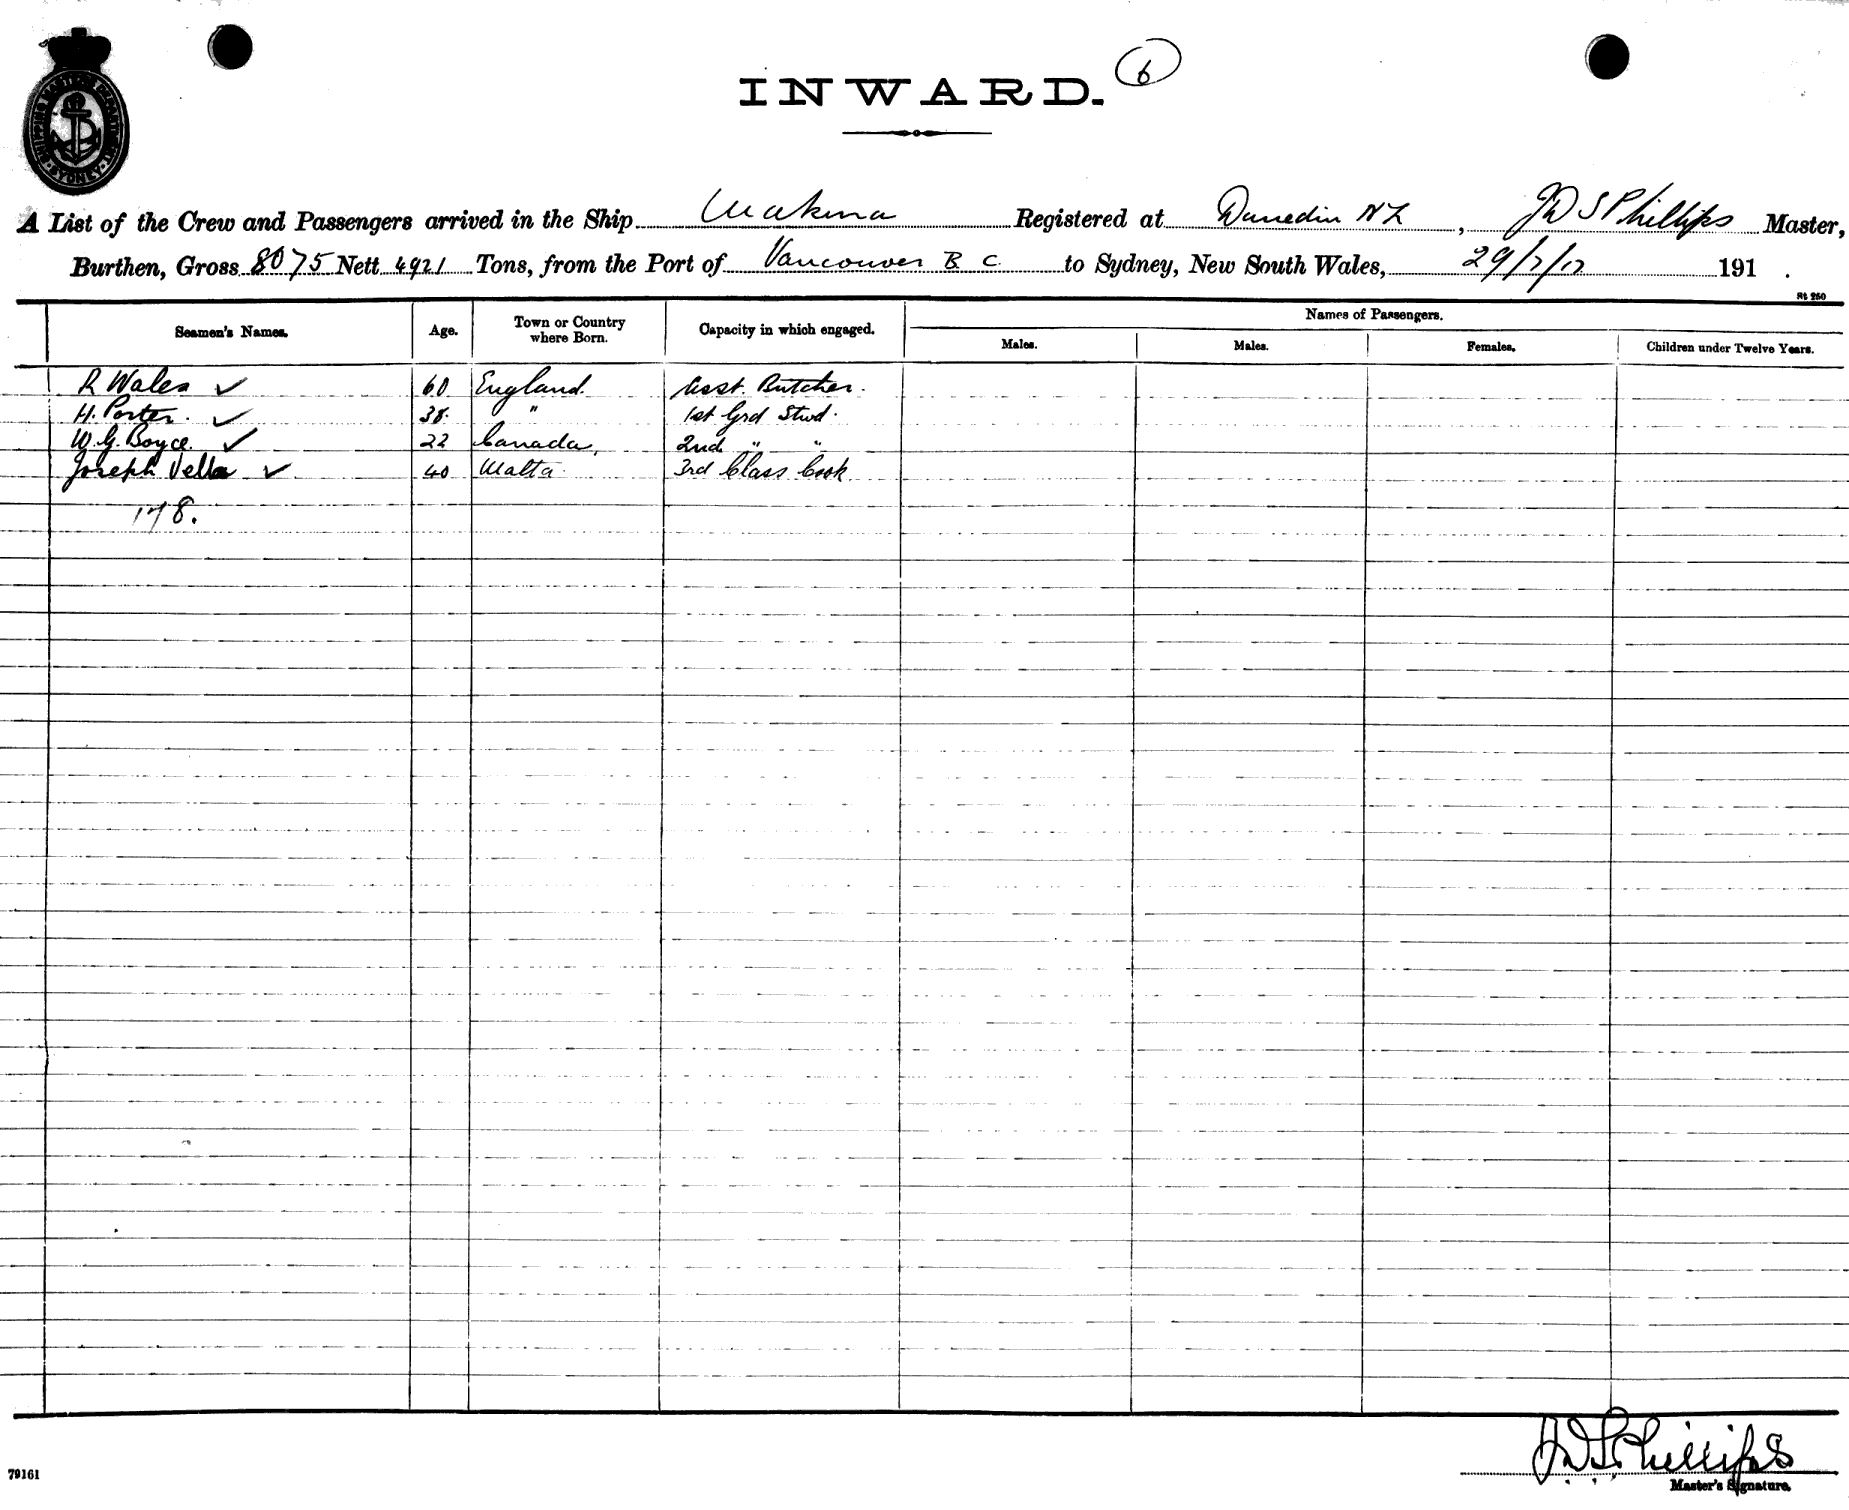 SHIPPING MASTERS DEPARTMENT
SYDNEY
6
INWARD.
A List of the Crew and Passengers arrived in the Ship Makura Registered at Dunedin NZ, JDS Phillips Master,
Burthen, Gross 8075 Nett 4921 Tons, from the Port of Vancouver B C to Sydney, New South Wales, 29/7/12 191 .
St 260
Seamen's Names. Age. Town or Country where Born. Capacity in which engaged. Names of Passengers.
Males. Males. Females. Children under Twelve Years.
R Wales ✓ 60 England Asst. Butcher.
H. Porter. ✓ 38. " 1st Grd Stwd.
W. G. Boyce ✓ 22 Canada, 2nd " "
Joseph Vella ✓ 40 Malta 3rd Class Cook
178.
JDS Phillips
Master's Signature.
79161